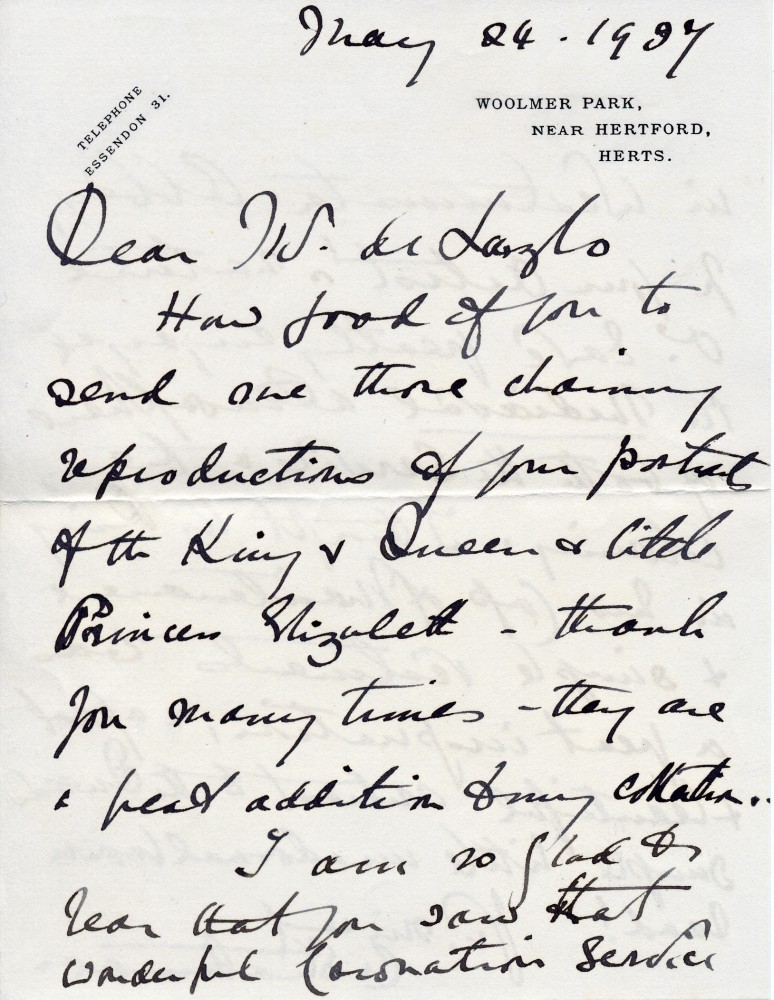 May 24 . 1937
TELEPHONE
ESSENDON 31.
WOOLMER PARK,
NEAR HERTFORD,
HERTS.
Dear Mr. de Laszlo
How good of you to
send me those charming
reproductions of your portraits
of the King & Queen & little
Princess Elizabeth - thank
you many times - they are
a great addition to my collection..
I am so glad to
hear that you saw that
wonderful Coronation Service